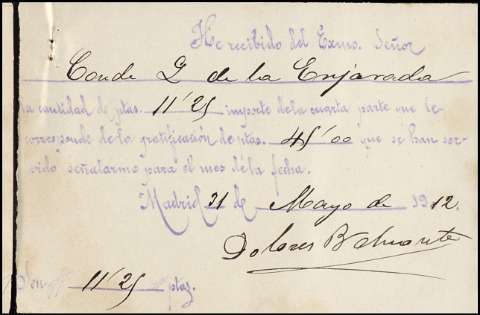 He recibido del Exmo. Señor
Conde 2 de la Enjarada
la cantidad de ptas. 11'25 importe de la cuarta parte que le
corresponde de la gratificación de ptas. 45'00 que se han ser-
vido señalarme para el mes de la fecha.
Madrid 31 de Mayo de 1912.
Dolores
Son 11'25 ptas.